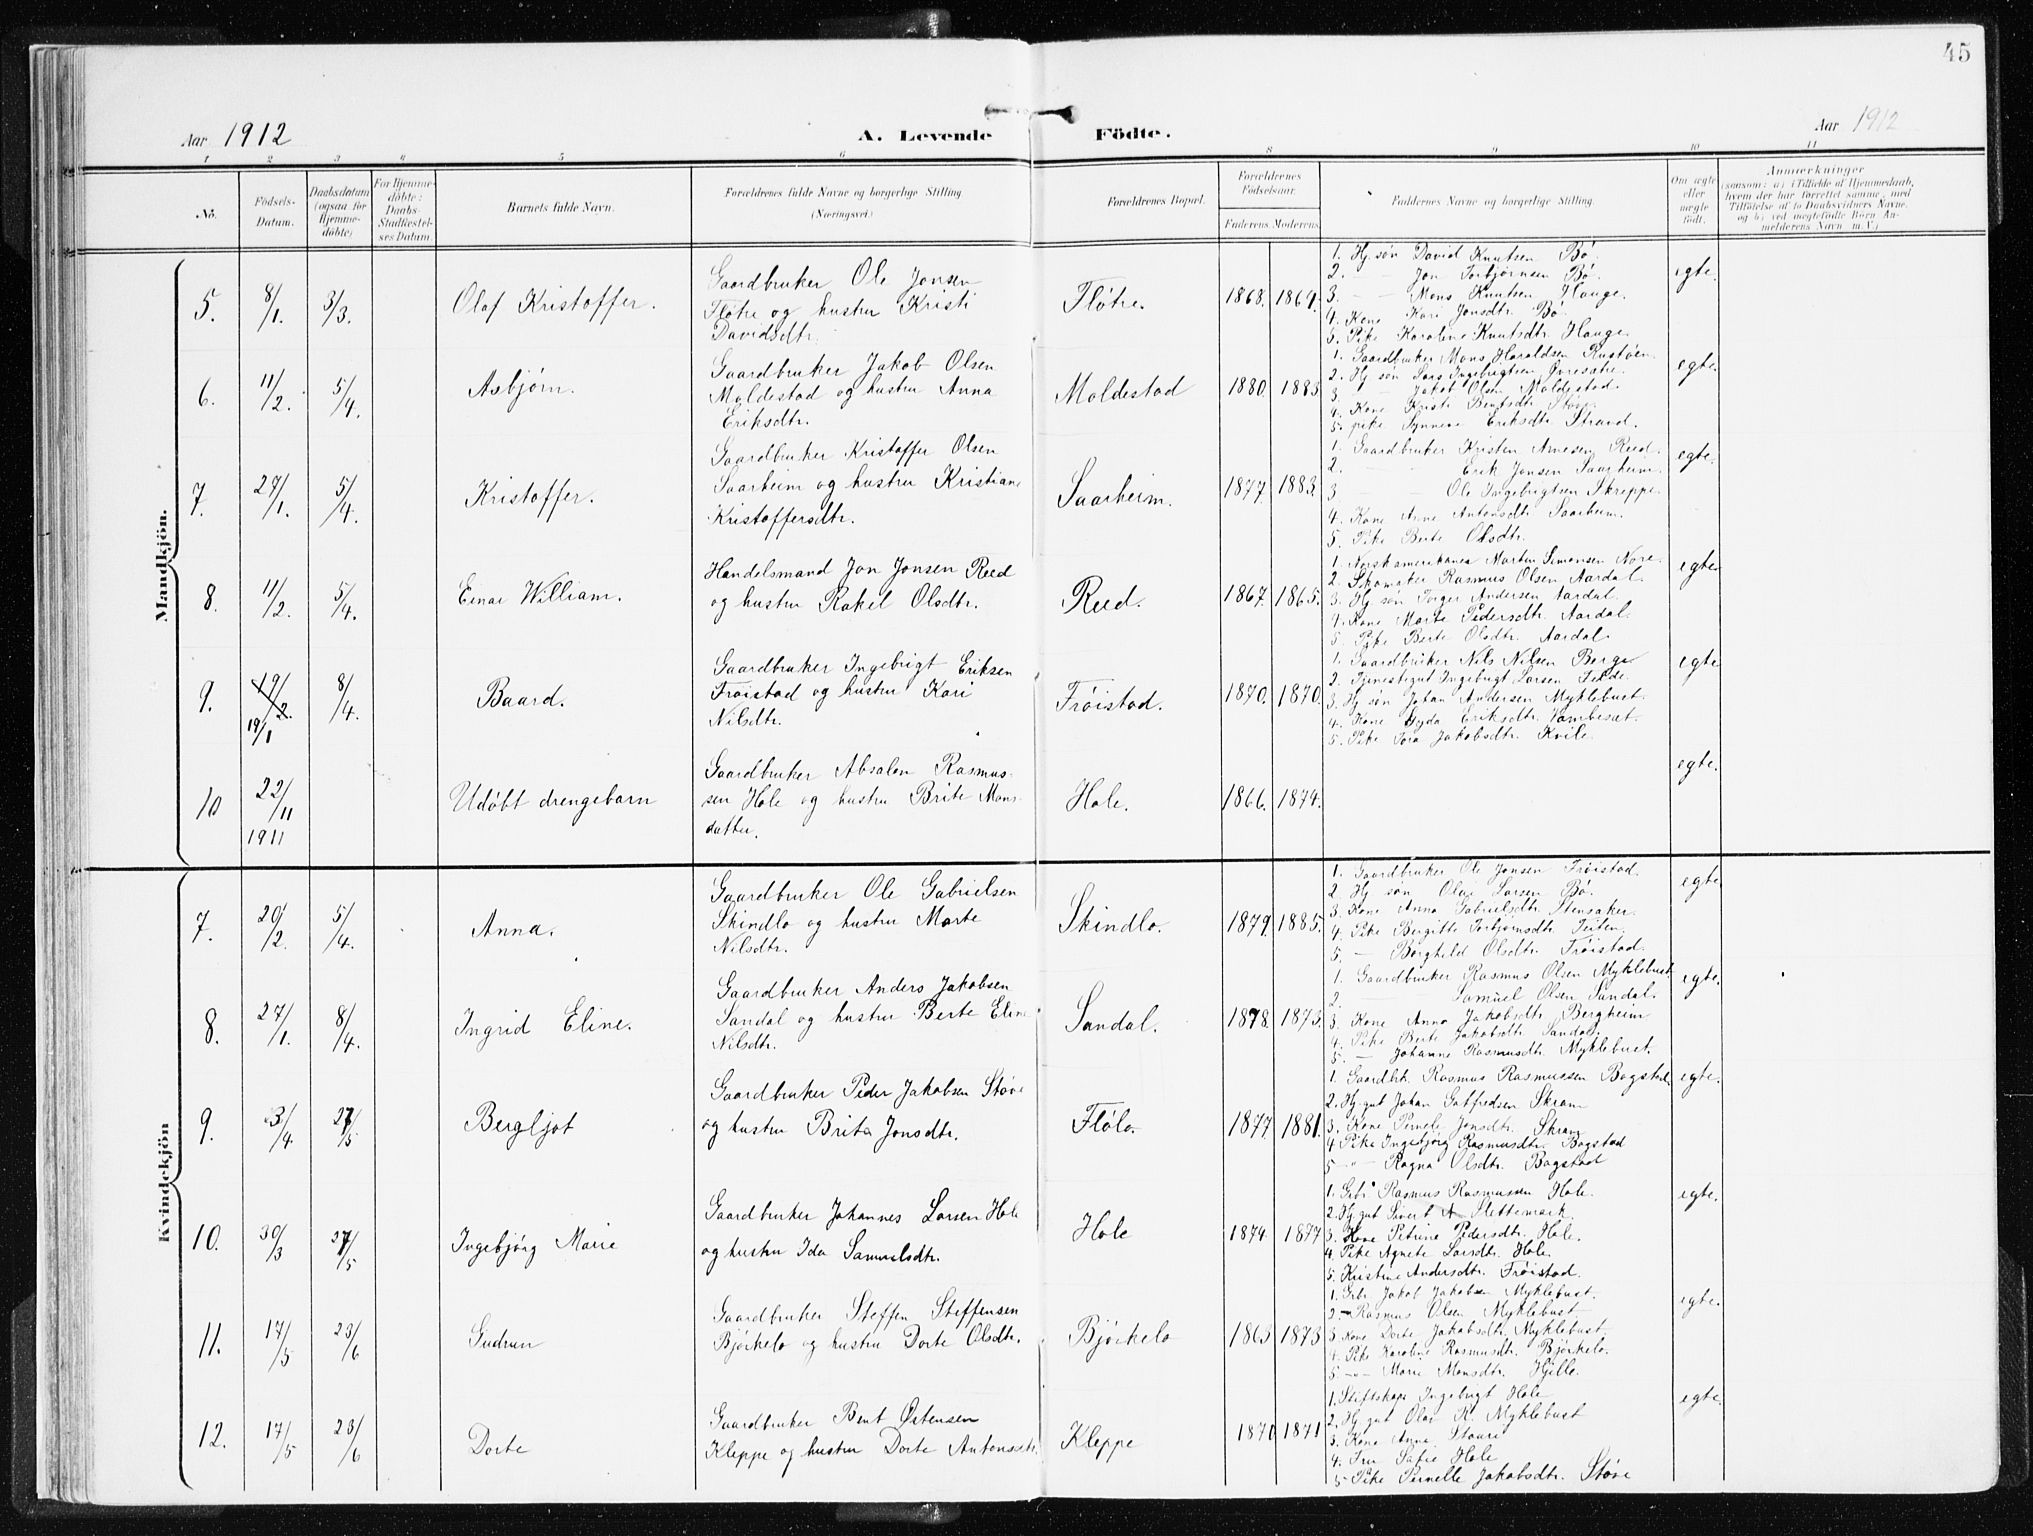 45
Aar 1912
A. Levende Födte.
Aar 1912
1 2 3 4 5 6 8 9 10 11
No.
Födsels-Datum.
Daabsdatum (ogsaa for Hjemme-döbte)
For Hjemme-döbte: Daabs-Stadfæstel-ses Datum.
Barnets fulde Navn.
Forældrenes fulde Navne og borgerlige Stilling
(Næringsvei)
Forældrenes Bopæl.
Forældrenes Födselsaar.
Faderens. Moderens.
Faddernes Navne og borgerlige Stilling.
Om ægte eller uægte födt.
Anmerkninger
(saasom: a) i Tilfælde af Hjemmedaab, hvem der har forrettet samme, med Tilföielse af to Daabsvidners Navne, og b) ved uegtefödte Börn An-melderens Navn m. V.)
Mandkjön.
5. 8/1. 3/3. Olaf Kristoffer.
Gaardbruker Ole Jonsen
Fløtre og hustru Kristi
Davidsdtr.
Fløtre. 1868. 1864.
1. Hj. søn David Knutsen Bø.
2. — Jon Torbjørnsen Bø.
3. — — Mons Knutsen Hauge.
4. Kone Kari Jonsdtr. Bø.
5. Pike Karoline Knutsdtr. Hauge.
egte.
6. 11/2. 5/4. Asbjørn.
Gaardbruker Jakob Olsen
Moldestad og hustru Anna
Eriksdtr.
Moldestad 1880. 1883
1. Gaardbruker Mons Haraldsen Rustøen.
2. Hj søn Lars Ingebrigtsen
3. — Jakob Olsen Moldestad.
4. Kone Kristi Bentsdtr Støve.
5. pike Synneve Eriksdtr Strand.
egte.
7. 27/1. 5/4. Kristoffer.
Gaardbruker Kristoffer Olsen
Saarheim og hustru Kristiane
Kristoffersdtr.
Saarheim. 1877. 1883.
1. Gaardbruker Kristen Arnesen Reed.
2. — Erik Jonsen Saarheim.
3 — — Ole Ingebrigtsen Skreppe.
4. Kone Anne Antonsdtr Saarheim.
5. Pike Berte Olsdtr.
egte.
8. 11/2. 5/4. Einar William.
Handelsmand Jon Jonsen Reed
og hustru Rakel Olsdtr.
Reed. 1867. 1865.
1. Norskamerikaner Morten Simonsen Nore.
2. Skomaker Rasmus Olsen Aardal.
3. Hj søn Torger Andersen Aardal.
4. Kone Marte Pedersdtr. Aardal.
5. Pike Berte Olsdtr. Aardal.
egte
9. 19/2. 19/1 8/4. Baard.
Gaardbruker Ingebrigt Eriksen
Frøistad og hustru Kari
Nilsdtr.
Frøistad. 1870. 1870.
1. Gaardbruker Nils Nilsen Berge
2. Tjenestegut Ingebrigt Larsen
3. Hj søn Johan Andersen Myklebust.
4. Kone Gyda Eriksdtr.
5. Pike Tora Jakobsdtr. Kvile.
egte
10 22/11 1911 Udøbt drengebarn
Gaardbruker Absalon Rasmus-
sen Hole og hustru Brite Mons-
datter.
Hole. 1866. 1874.
egte.
Kvindekjön
7. 20/2. 5/4. Anna.
Gaardbruker Ole Gabrielsen
Skindlo og hustru Marte
Nilsdtr.
Skindlo. 1879. 1885.
1. Gaardbruker Ole Jonsen Frøistad.
2. Hj søn Olai Larsen Bø.
3. Kone Anna Gabrielsdtr. Stensaker.
4. Pike Bergitte Torbjørnsdtr Teiten.
5. — Borghild Olsdtr. Frøistad.
egte
8. 27/1. 8/4. Ingrid Eline.
Gaardbruker Anders Jakobsen
Sandal og hustru Berte Eline
Nilsdtr.
Sandal. 1878. 1873.
1. Gaardbruker Rasmus Olsen Myklebust
2. — Samuel Olsen Sandal.
3. Kone Anna Jakobsdtr Bergheim
4. Pike Berte Jakobsdtr Sandal.
5. — Johanne Rasmusdtr. Myklebust.
egte.
9. 3/4 27/5 Bergljot
Gaardbruker Peder Jakobsen Støve
og hustru Brita Jonsdtr.
Fløto. 1877 1881.
1. Gaardbr. Rasmus Rasmussen Bogstad
2. Hj. gut Johan Gotfredsen Skram
3. Kone Pernele Jonsdtr. Skram
4 Pike Ingebjørg Rasmusdtr. Bogstad
5 -"- Ragna Olsdtr. Bogstad
egte.
10. 30/3 27/5 Ingebjørg Marie
Gaardbruker Johannes Larsen Hole
og hustru Ida Samuelsdtr.
Hole 1874 1877
1. Gbr. Rasmus Rasmussen Hole.
2. Hj. gut Sivert A Slettemark.
3. Kone Petrine Pedersdtr. Hole.
4. Pike Agnete Larsdtr. Hole.
5. Kristine Andersdtr. Frøistad.
egte.
11. 17/5 23/6 Gudrun
Gaardbruker Steffen Steffensen
Bjørkelo og hustru Dorte Olsdtr.
Bjørkelo 1863 1873
1. Gbr. Jakob Jakobsen Myklebust.
2. — Rasmus Olsen Myklebust
3. Kone Dorte Jakobsdtr. Myklebust
4. Pike Karoline Rasmusdtr. Bjørkelo.
5. -"- Marie Monsdtr. Hjelle.
egte.
12. 17/5 23/6 Dorte
Gaardbruker Bent Østensen
Kleppe og hustru Dorte Antonsdtr
Kleppe 1870 1871
1. Stiftskap. Ingebrigt Hole
2. Hj. gut Olav R. Myklebust
3. Kone Anna Staari
4. Fru Sofie Hole
5 Pike Pernelle Jakobsdtr. Støve
egte.